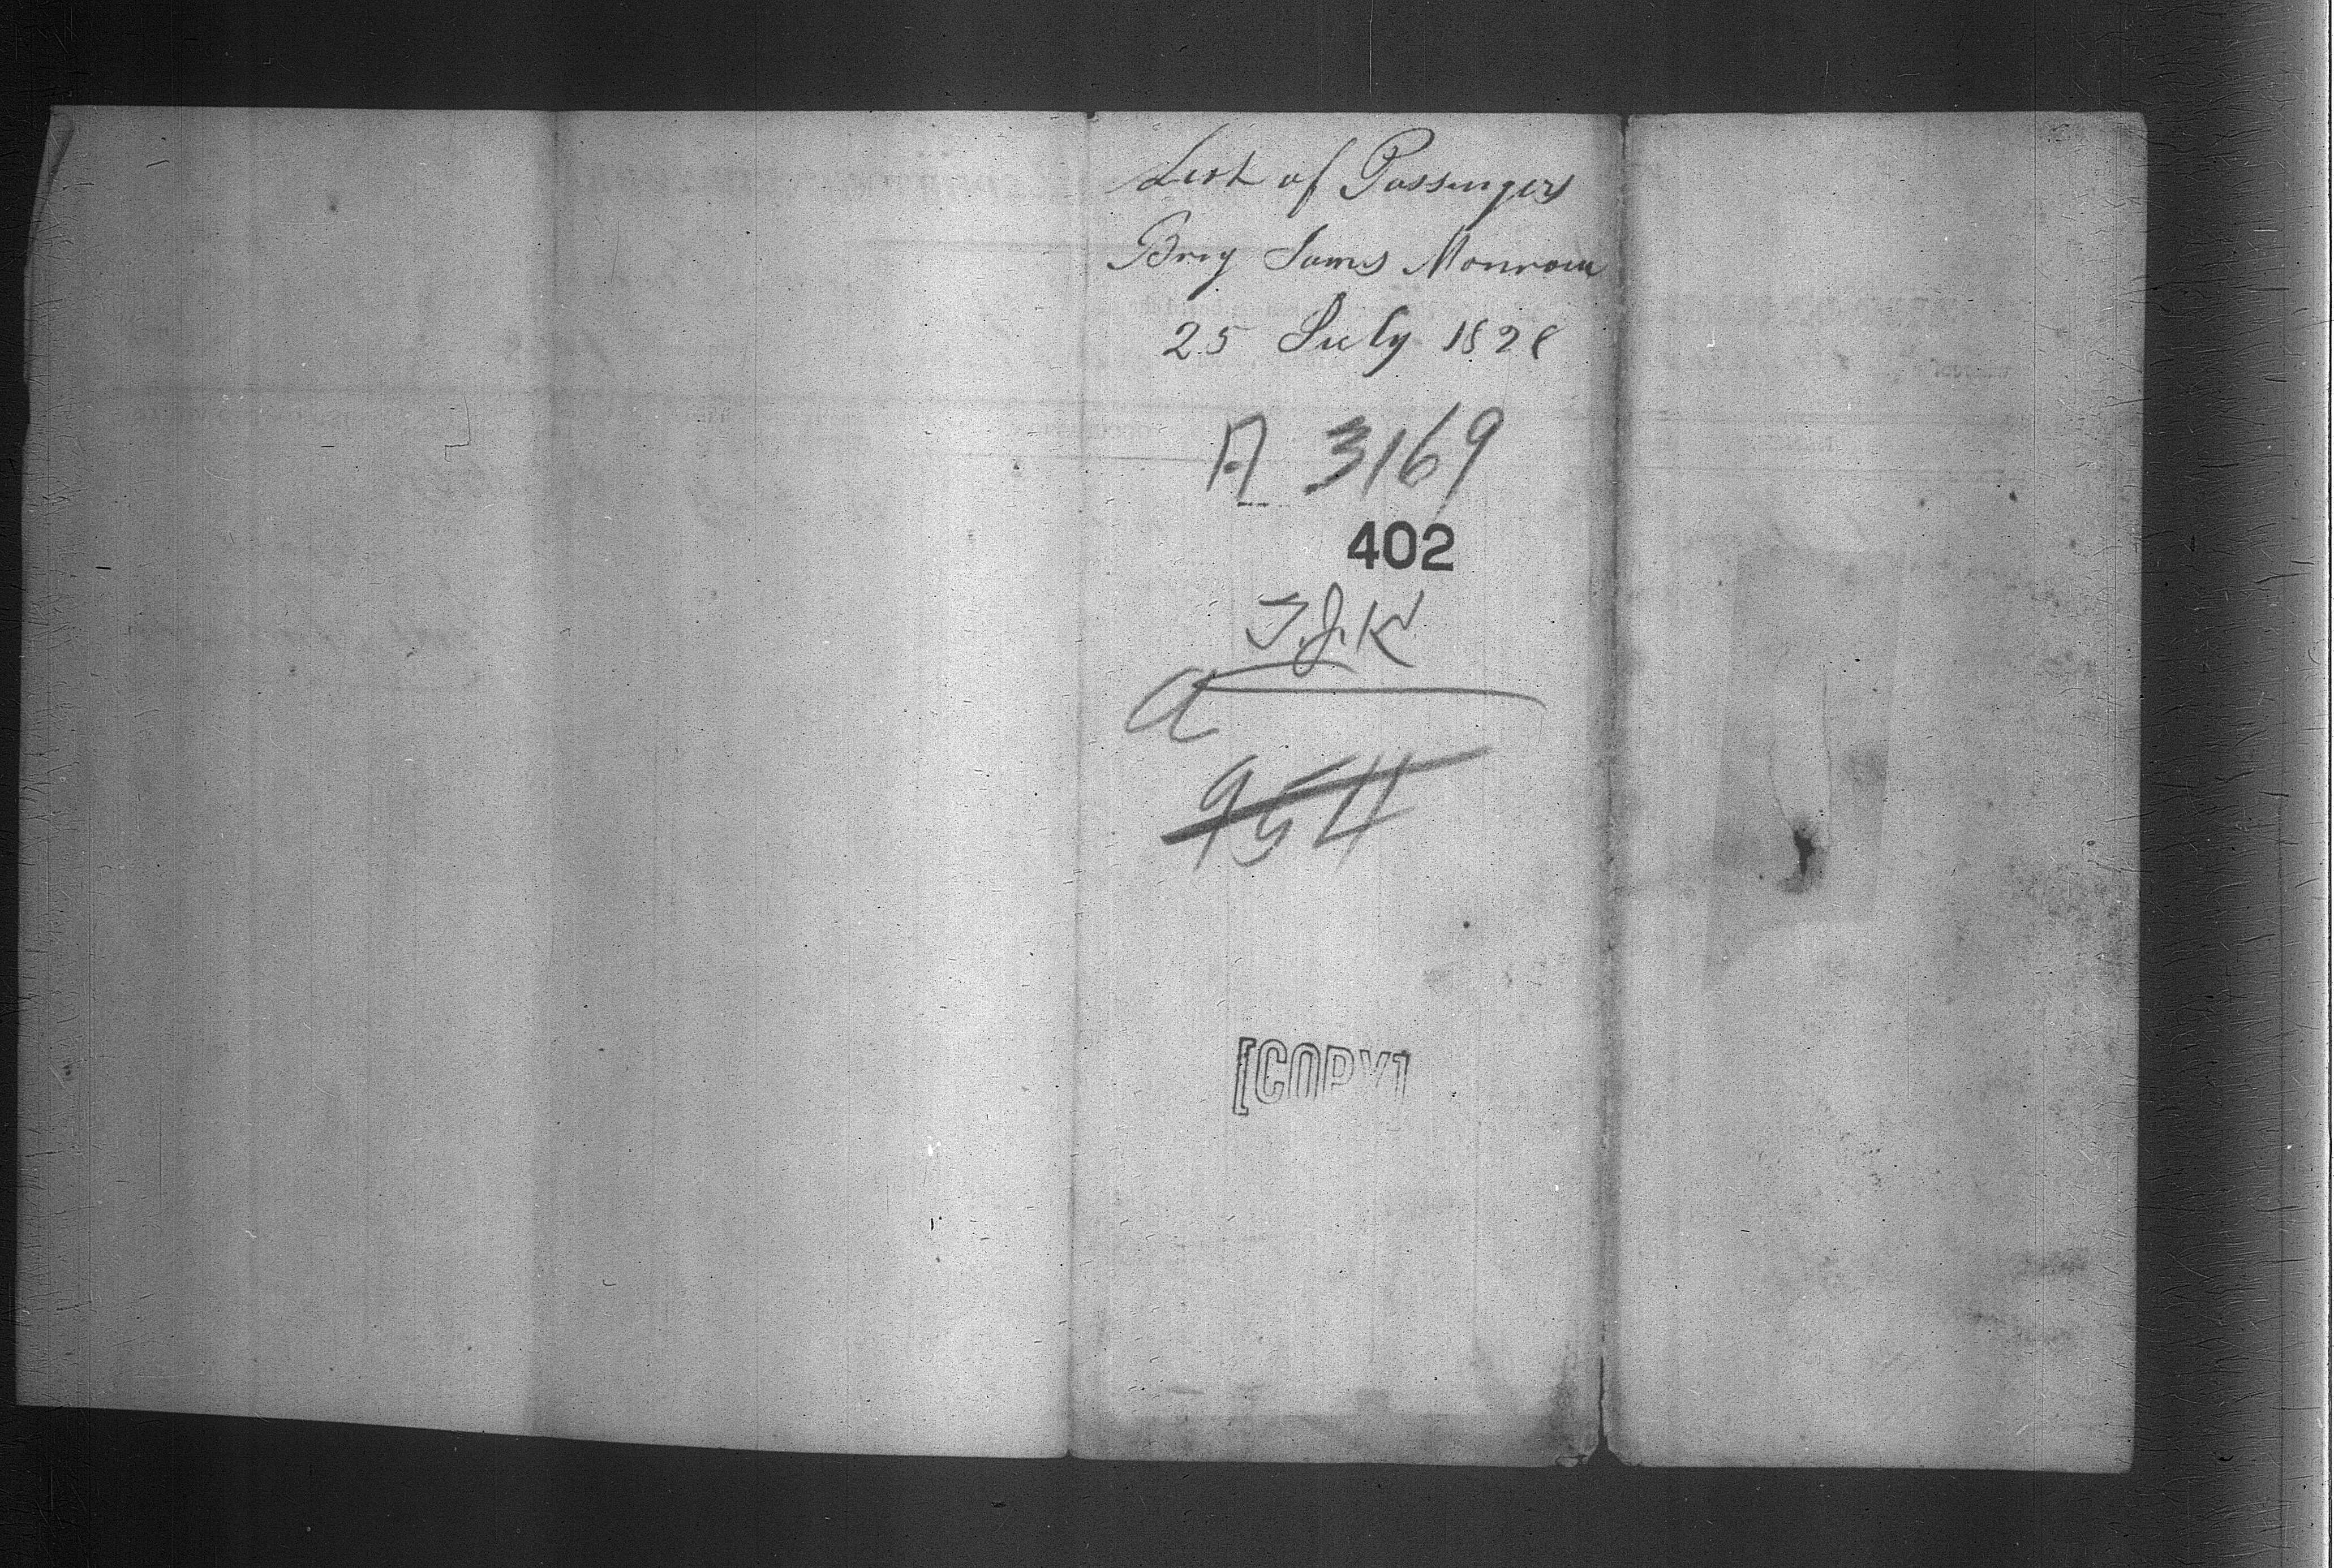 List of Passengers
Brig James Monroe
25 July 1828
A 3169
402
T.J.K
a
954
[COPY]